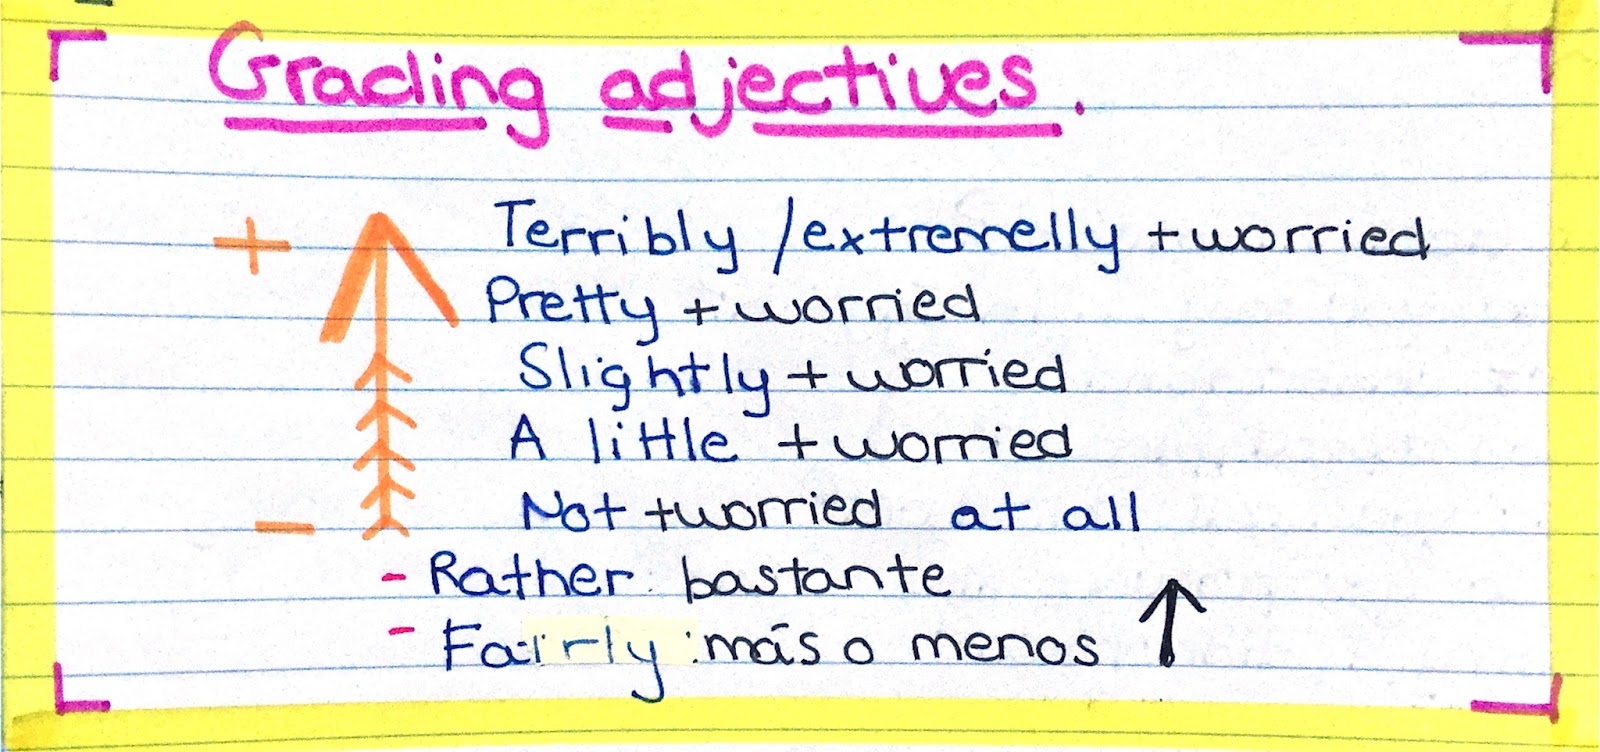 Grading adjectives.
+ Terribly /extremelly + worried
Pretty + worried
Slightly + worried
A little + worried
- Not + worried at all
- Rather. bastante
- Fairly : más o menos